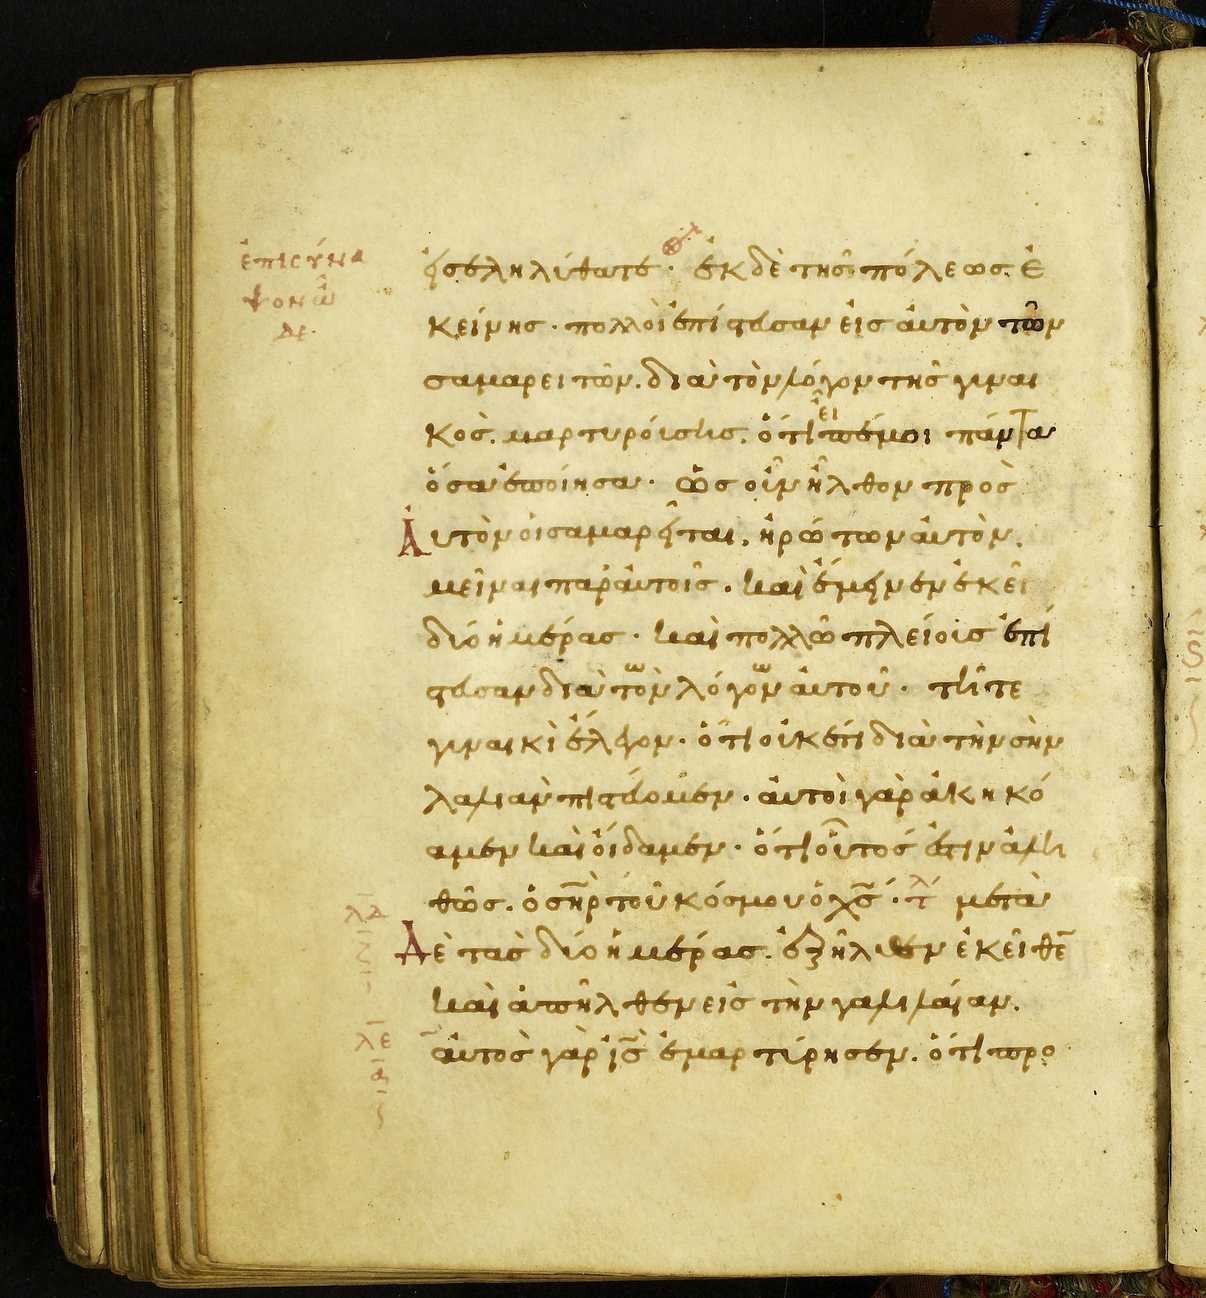 ἐπισύνα
ψον ὧ
δε·
εἰσεληλύθατε· ἐκ δὲ τῆς πόλεως. ἐ
κείνης· πολλοὶ ἐπίστευσαν εἰς αὐτὸν τῶν
σαμαρειτῶν. διὰ τὸν λόγον τῆς γυναι
κὸς. μαρτυρούσης. ὅτι εἶπέ μοι πάντα
ὅσα ἐποίησα· ὡς οὖν ἦλθον πρὸς
Αὐτὸν οἱ σαμαρεῖται, ἠρώτων αὐτὸν.
μεῖναι παρ' αὐτοῖς· καὶ ἔμεινεν ἐκεῖ
δύο ἡμέρας· καὶ πολλῶ πλείοις ἐπί
στευσαν διὰ τὸν λόγον αὐτοῦ· τῆ τε
γυναικὶ ἔλεγον· ὅτι οὐκέτι διὰ τὴν σὴν
λαλιὰν πιστεύομεν· αὐτοὶ γὰρ ἀκηκό
αμεν καὶ οἴδαμεν· ὅτι οὗτός ἐστιν ἀλη
θῶς. ὁ σηρ τοῦ κόσμου ὁ χς· τλ μετὰ
λδ
ζ
Δὲ τὰς δύο ἡμέρας. ἐξῆλθεν ἐκεῖθε
καὶ ἀπῆλθεν εἰς τὴν γαλιλαίαν.
λε
α
αὐτὸς γὰρ ις ἐμαρτύρησεν. ὅτι προ